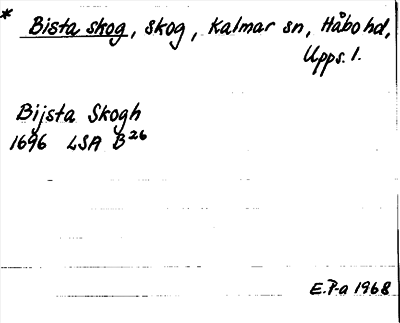 * Bista skog, skog, Kalmar sn, Håbo hd,
Upps. l.
Bijsta Skogh
1696 LSA B26
E.P-a 1968